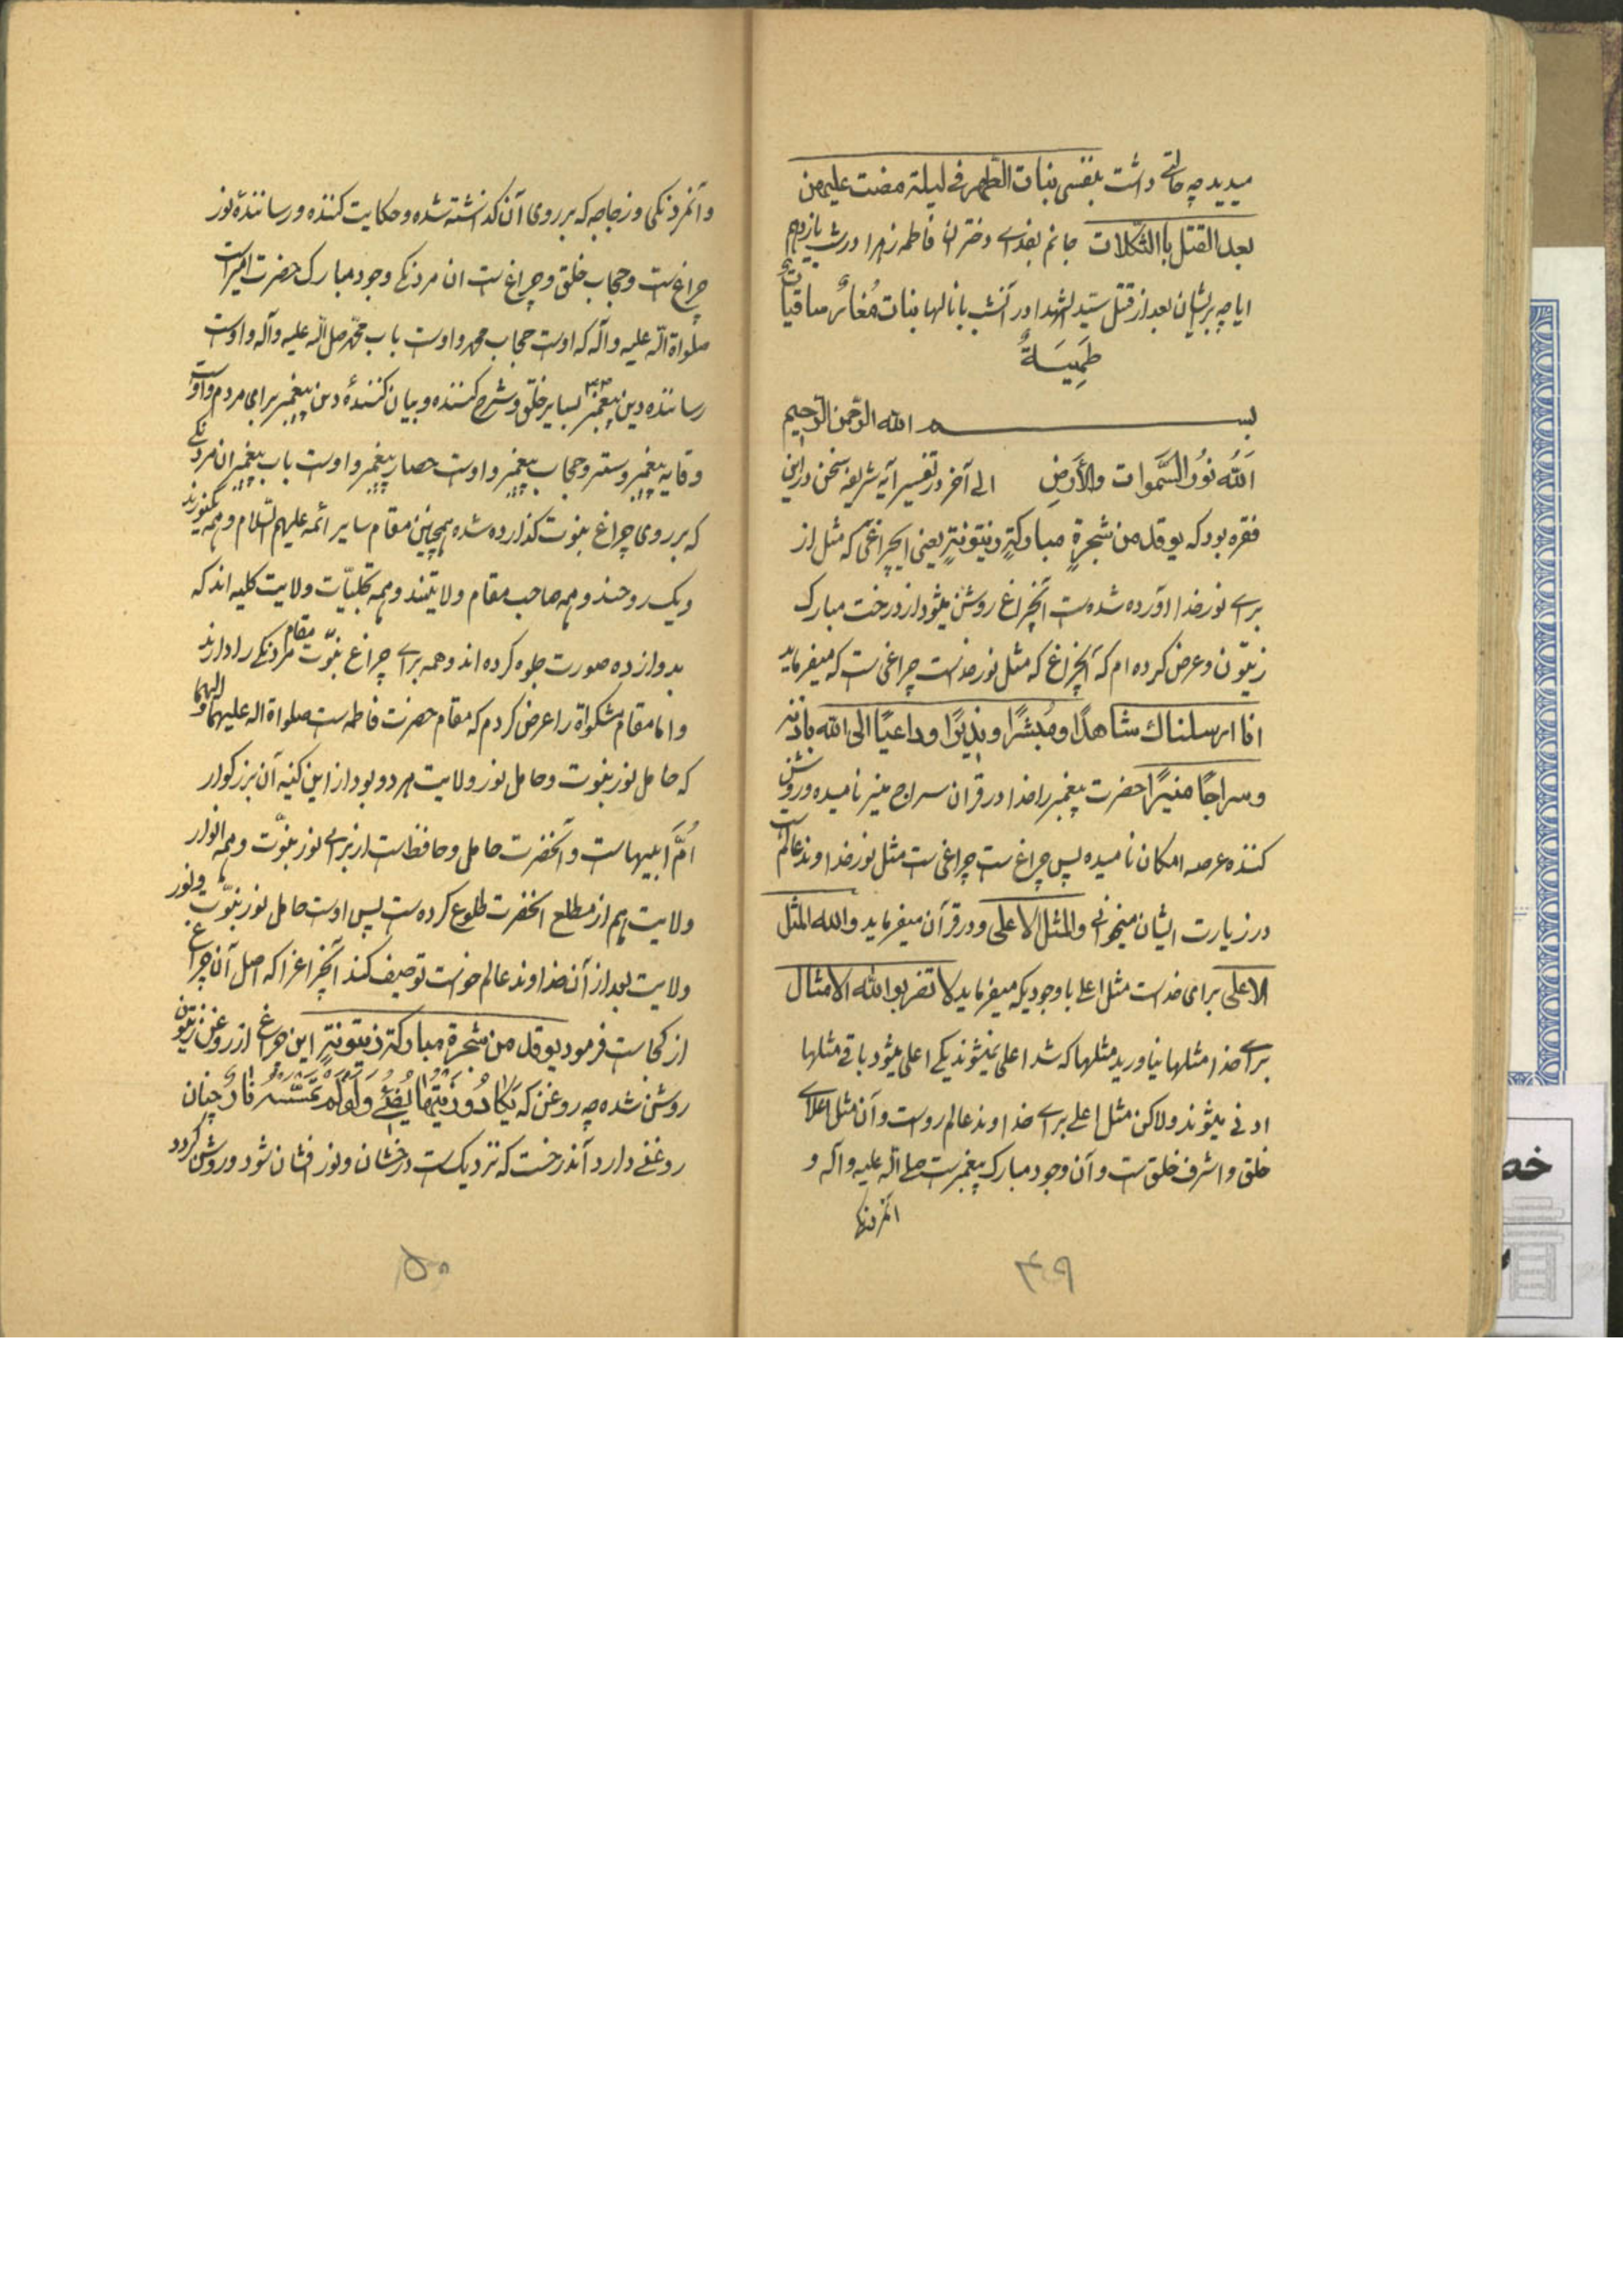 میدید چه حالتی داشت بنفسی بنات الطهر فی لیلة مضت علیهن
بعد القتل بالثکلات جانم بفدای دختران فاطمه زهرا در شب یازدهم
ایا چه بر ایشان بعد از قتل سید الشهدا در آنشب با نالها بنات
طَمِیسَةٌ
بسم الله الرحمن الرحیم
اَللّٰهُ نُورُ السَّمٰوات والأَرضِ الی آخر در تفسیر آیه شریفه سخن در این
فقره بود که یوقد من شجرةٍ مبارکةٍ زیتونةٍ یعنی اینچراغی که مثل از
برای نور خدا آورده شده است آنچراغ روشن میشود از درخت مبارک
زیتون و عرض کرده ام که آنچراغ که مثل نور خداست چراغی است که میفرماید
انا ارسلناک شاهدًا و مُبشرًا و نذیرًا و داعیًا الی الله باذنه
و سراجًا منیرًا حضرت پیغمبر را خدا در قرآن سراج منیر نامیده و روشن
کننده عرصه امکان نامیده پس چراغ است چراغی است مثل نور خداوند عالم است
در زیارت ایشان میخوانی والمثل الاعلی و در قرآن میفرماید ولله المثل
الاعلی برای خداست مثل اعلی با وجودیکه میفرماید لا تضربوا لله الامثال
برای خدا مثلها نیاورید مثلها که شد اعلی نمیشوند یکی اعلی میشود باقی مثلها
ادنی میشوند ولاکن مثل اعلی برای خداوند عالم رواست و آن مثل اعلای
خلق و اشرف خلق است و آن وجود مبارک پیغمبر است صلی الله علیه و آله و
۴۹
و آنمردنگی و زجاجه که بر روی آن گذاشته شده و حکایت کننده و رساننده نور
چراغ است و حجاب خلق و چراغ است ان مردنگی وجود مبارک حضرت امیر است
صلواة الله علیه و آله که اوست حجاب محمد و اوست باب محمد صلی الله علیه و آله و اوست
رساننده دین پیغمبر بسایر خلق و شرح کننده و بیان کننده دین پیغمبر برای مردم و اوست
وقایه پیغمبر و ستر و حجاب پیغمبر و اوست حصار پیغمبر و اوست باب پیغمبر ان مردنگی
که بر روی چراغ نبوت گذارده شده همچنین مقام سایر ائمه علیهم السلام و همه یکنورند
و یک روحند و همه صاحب مقام ولایتند و همه تجلیات ولایت کلیه اند که
بدوازده صورت جلوه کرده اند و همه برای چراغ نبوت مقام مردنگی را دارند
و اما مقام مشکواة را عرض کردم که مقام حضرت فاطمه است صلواة اله علیها و الهما
که حامل نور نبوت و حامل نور ولایت هر دو بود از این کنیه آن بزرگوار
اُمّ اَبیهاست و آنحضرت حامل و حافظ است از برای نور نبوّت و همه انوار
ولایت هم از مطلع انحضرت طلوع کرده است پس اوست حامل نور نبوّت و نور
ولایت بعد از آن خداوند عالم خواست توصیف کند آنچراغرا که اصل آن چراغ
از کجاست فرمود یوقد من شجرة مبارکة زیتونةٍ این چراغ از روغن زیتون
روشن شده چه روغن که یَکادُ زَیتُها یُضیٓءُ وَلَو لَم تَمسَسهُ نارٌ چنان
روغنی دارد آندرخت که نزدیک است درخشان و نور افشان شود و روشن گردد
۵۰
خص